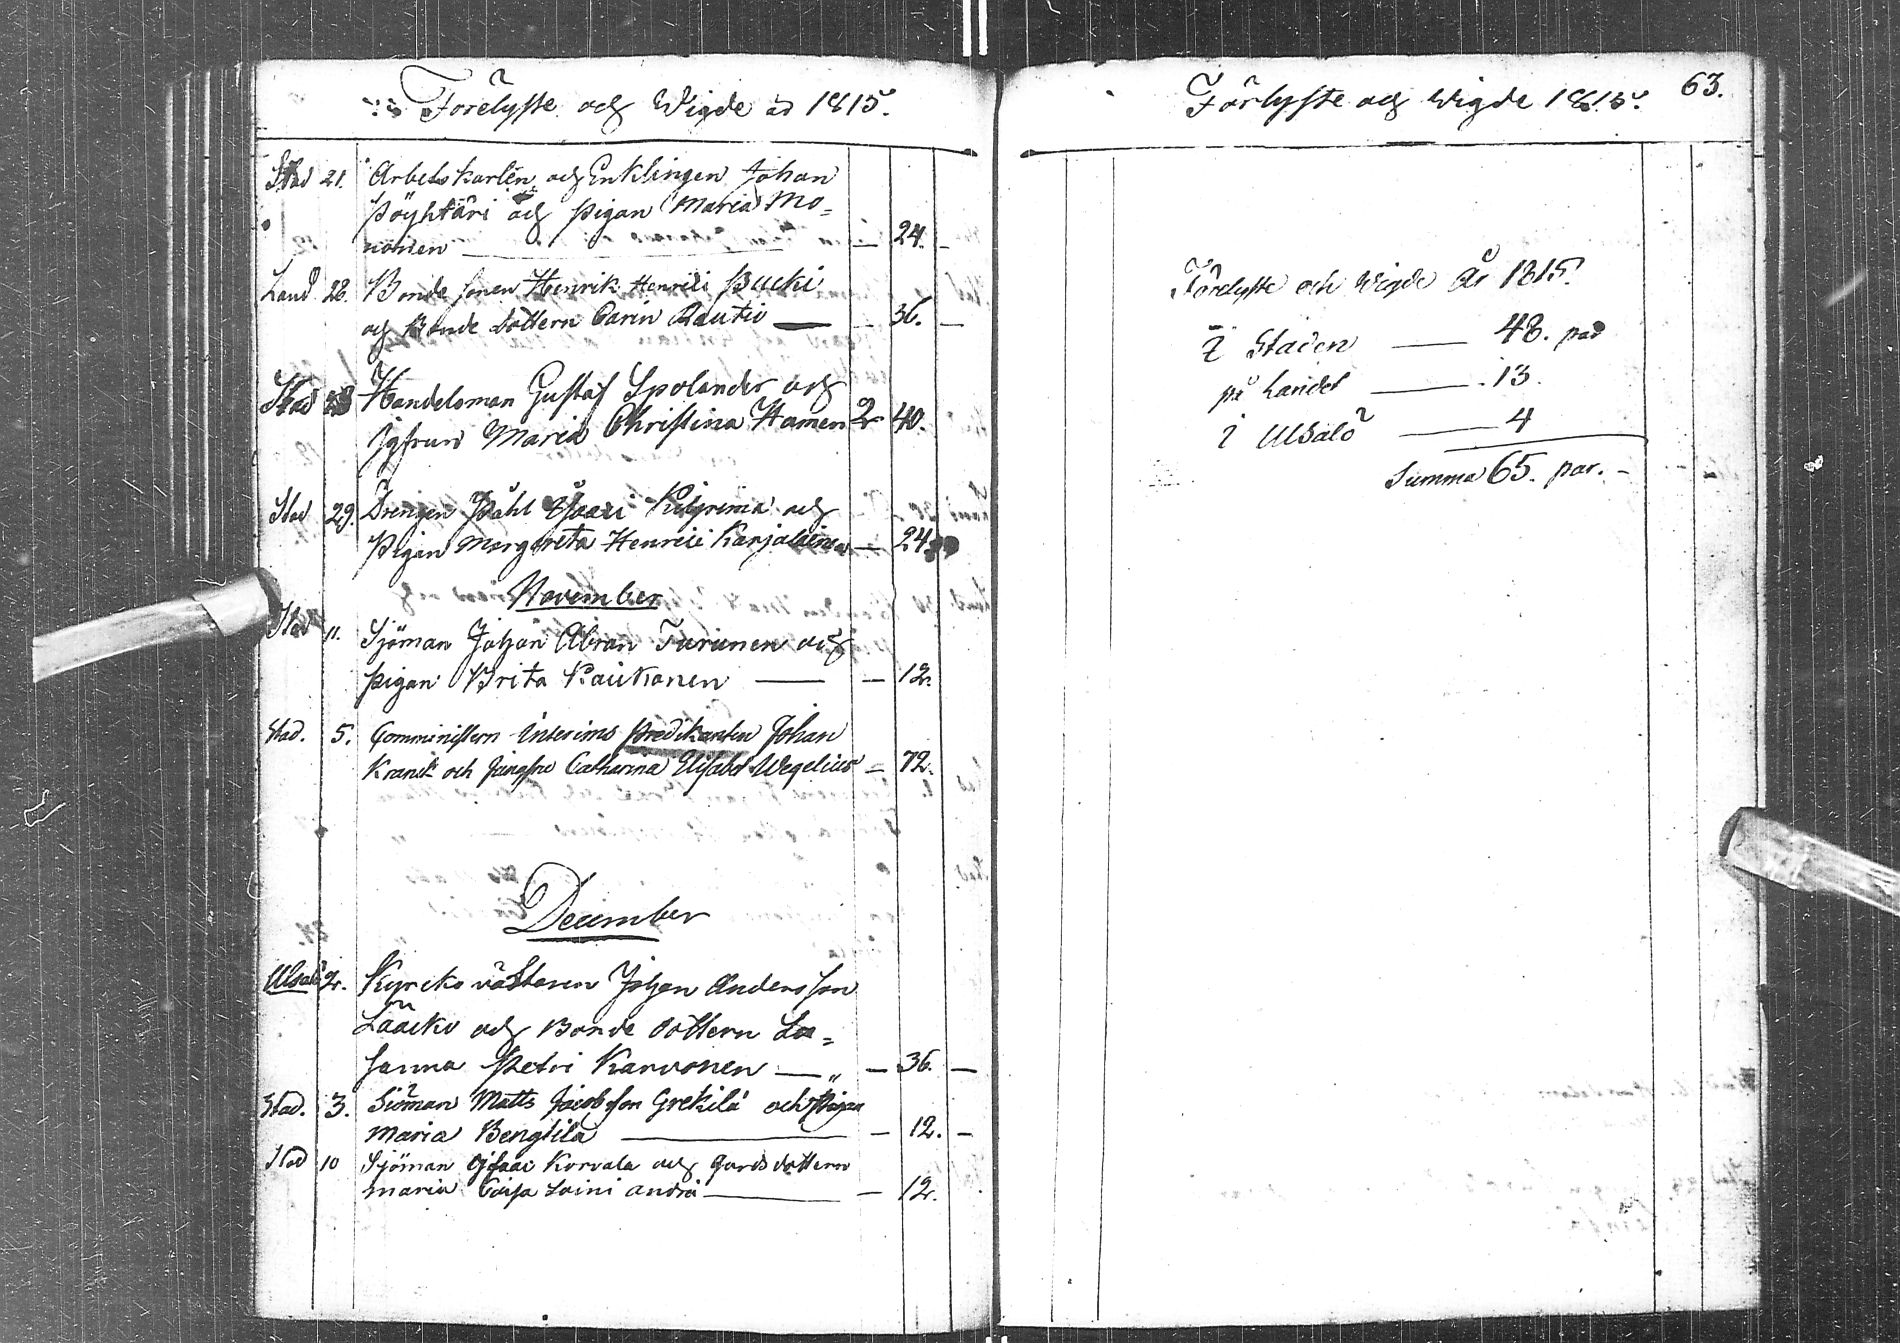 Förelyste och Wigde år 1815.
Stad 21. Arbetskarlen och Enklingen Johan
Pöyhtäri och Pigan Maria Mo=
nonen — 24. —
Land 28. Bonde sonen Henrik Henrici Pucki
och Bonde dottern Carin Rautio — — 36. —
Stad 28 Handelsman Gustaf Spolander och
Jgfrun Maria Christina Hamen 2 40.
Stad 29. Drengen Påhl Isaaci Kilströmä och
Pigan Margareta Henrici Karjalainen — 24.
November
Stad 11. Sjöman Johan Abram Turunen och
Pigan Brita Kaukonen — — 12.
Stad. 5. Comministern interims Predikanten Johan
Kranck och Jungfru Catharina Elisabet Wegelius — 72.
December
Ulsalö 2. Kyrcko västaren Johan Andersson
Lååcko och Bonde dottern Su=
sanna Petri Karvonen — „ — 36. —
Stad. 3. Siöman Matts Jacobsson Grekilä och Pigan
Maria Bengtilä — — 12. —
Stad 10 Sjöman Isaac Korvala och Gårdsdottern
Maria Caisa Lain — 12.
Förlyste och Wigde 1815. 63.
Förelyste och Wigde År 1815.
I Staden — 48. par
på Landet — 13.
i Ulsalö — 4
Summa 65. par. -